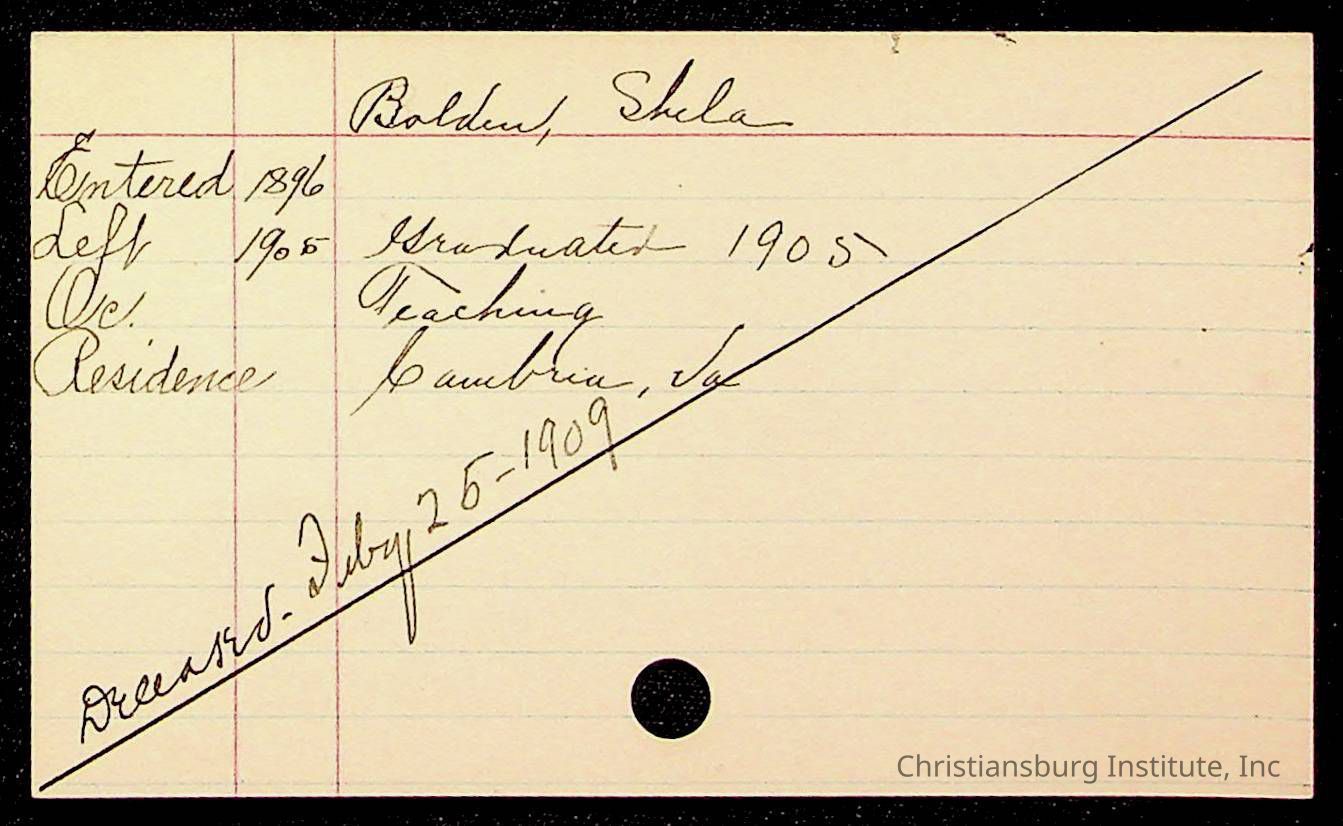 Bolden, Shela
Entered 1896
Left 1905 Graduated 1905
Oc. Teaching
Residence Cambria, Va
Deceased - Feby 25-1909
Christiansburg Institute, Inc